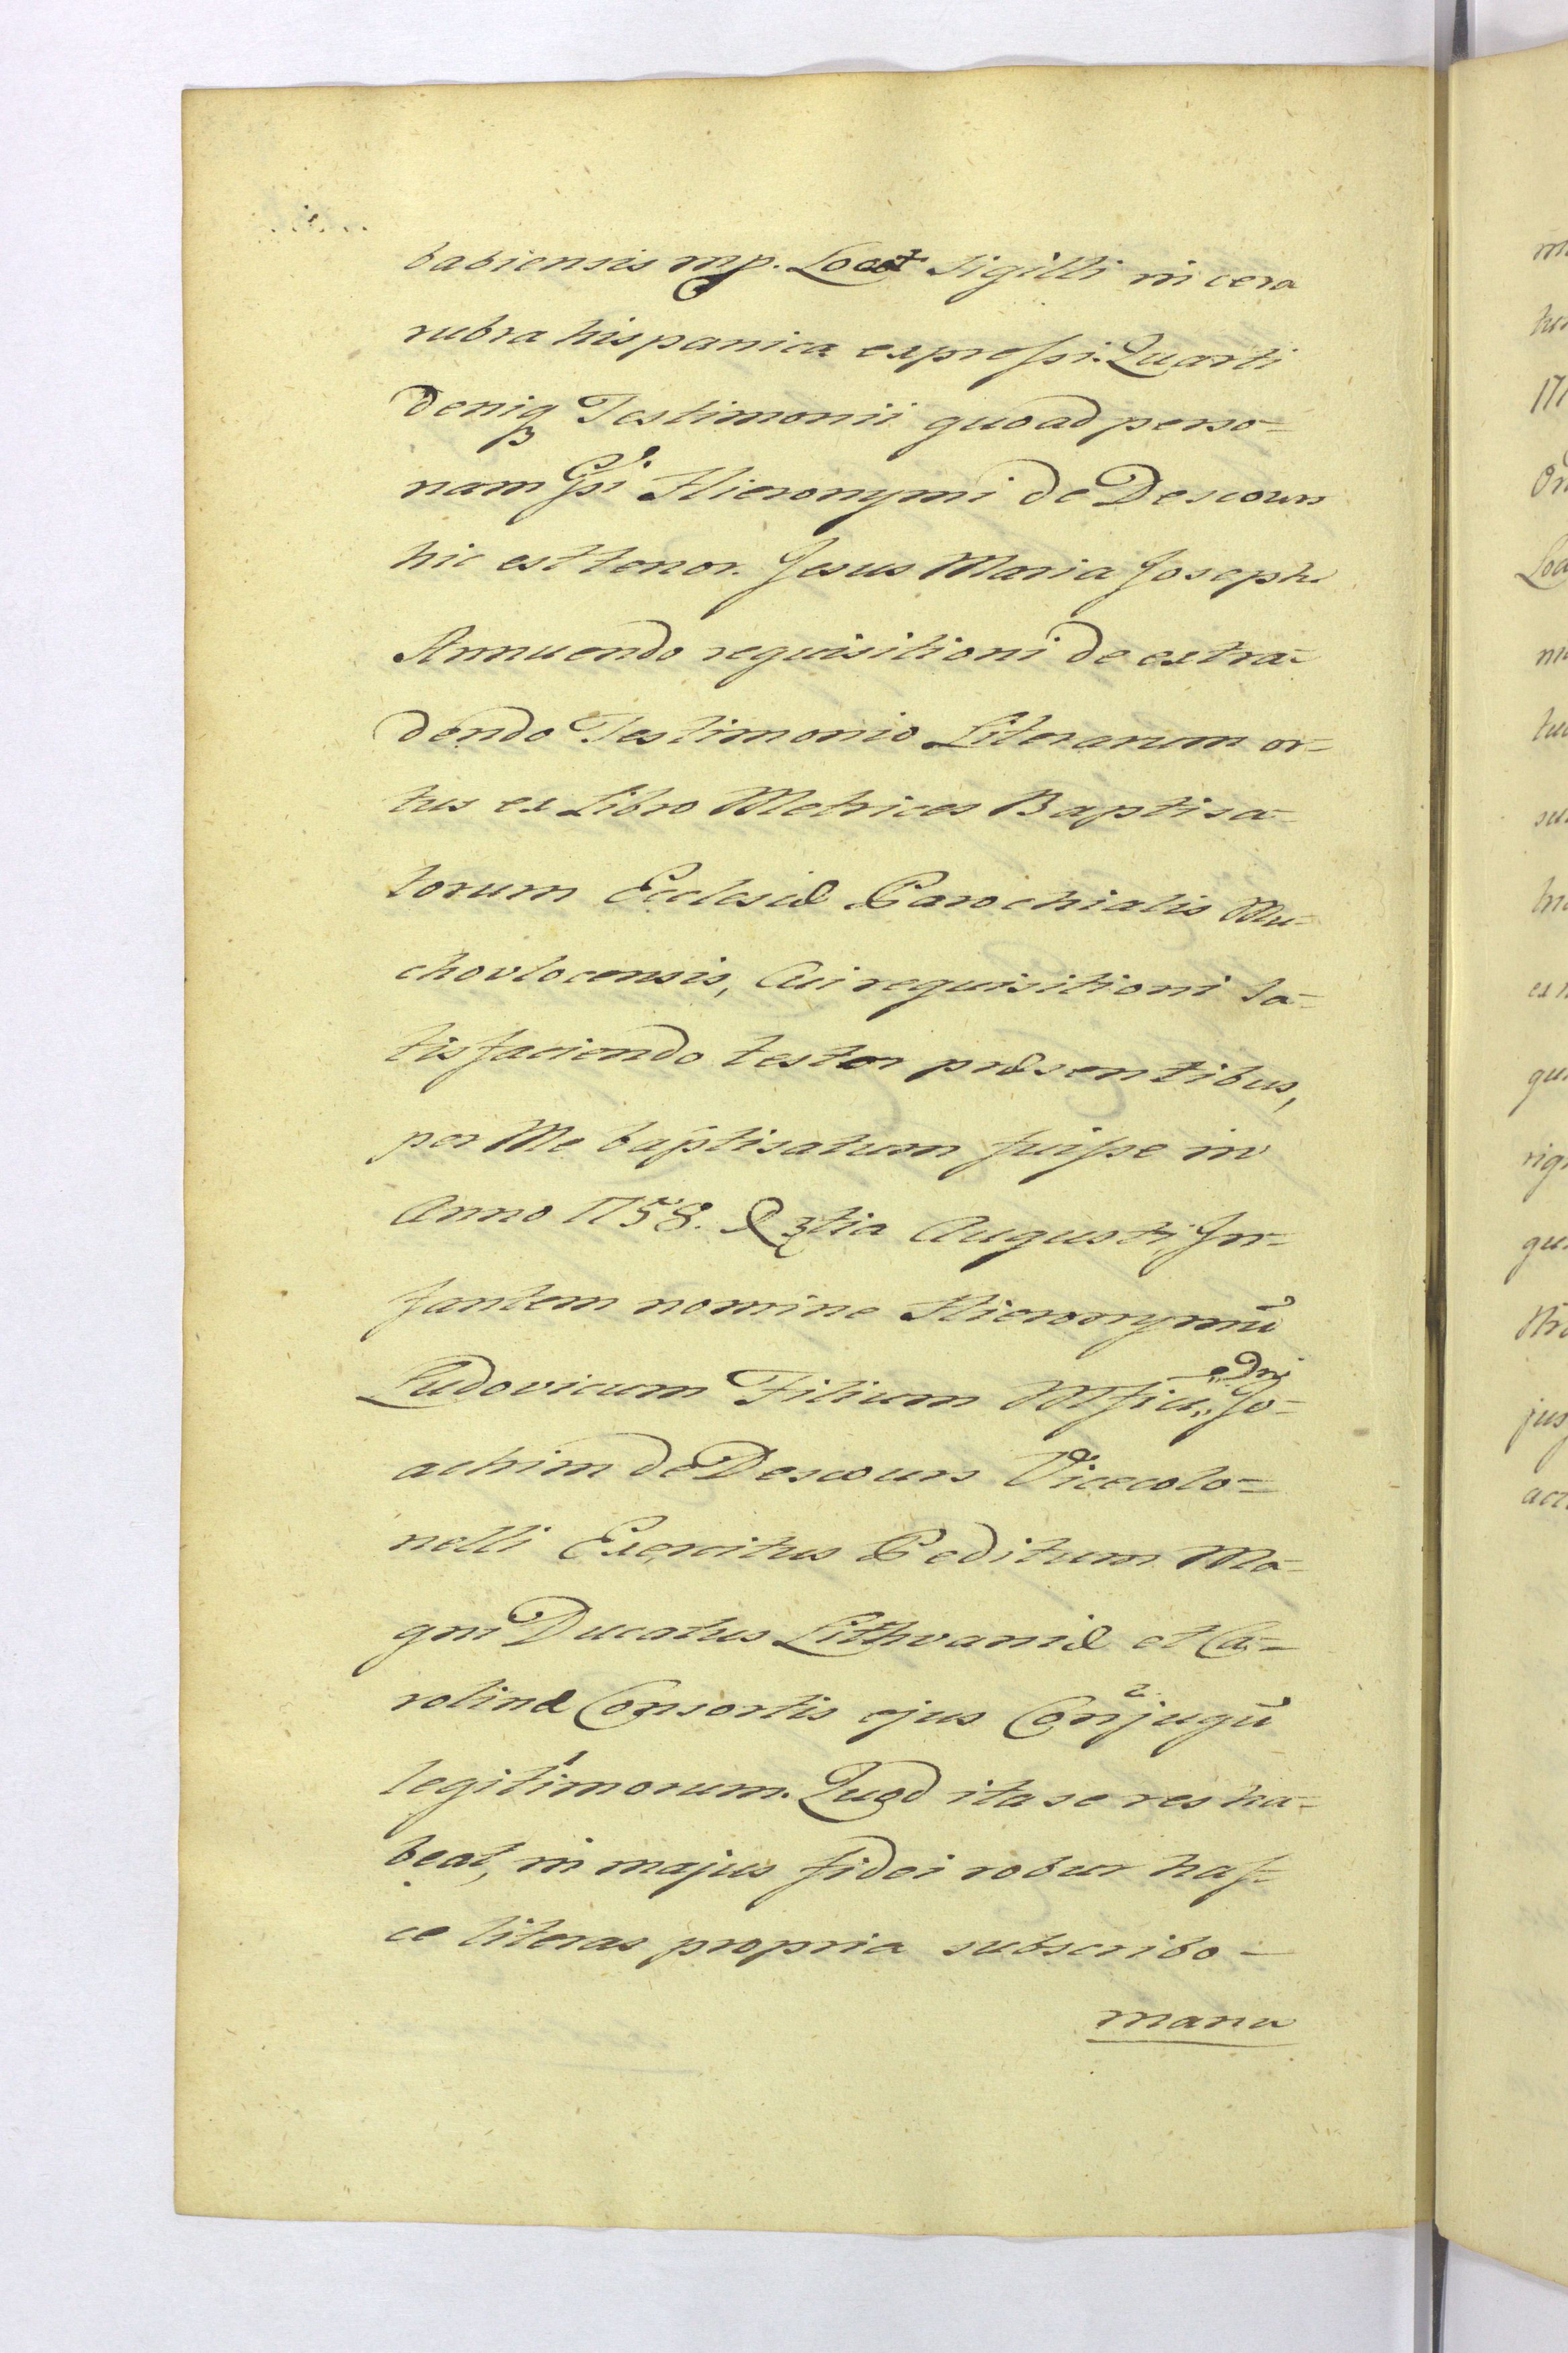 babiensis mp. Loco Sigilli in cera
rubra hispanica expressi. Quarti
deniq Testimonii quoad perso=
nam Gsi Hieronymi de Descours
hic est tenor. Jesus Maria Joseph
Annuendo requisitioni de extra=
dendo Testimonio Literarum or=
tus ex Libro Metrices Baptisa=
torum Ecclesiæ Parochialis Mu=
chovlocensis, Cui requisitioni sa=
tisfaciendo testor præsentibus,
per Me baptisatum fuisse in
Anno 1758. 3tia Augusti In=
fantem nomine Hieronymū
Ludovicum Filium Mfici Dni Jo=
achim de Descours Vicecolo=
nelli Exercitus Peditum Ma=
gni Ducatus Lithvaniæ et Ca=
rolinæ Consortis ejus Conjugū
legitimorum. Quod ita se res ha=
beat, in majus fidei robur has=
ce literas propria subscribo =
manu